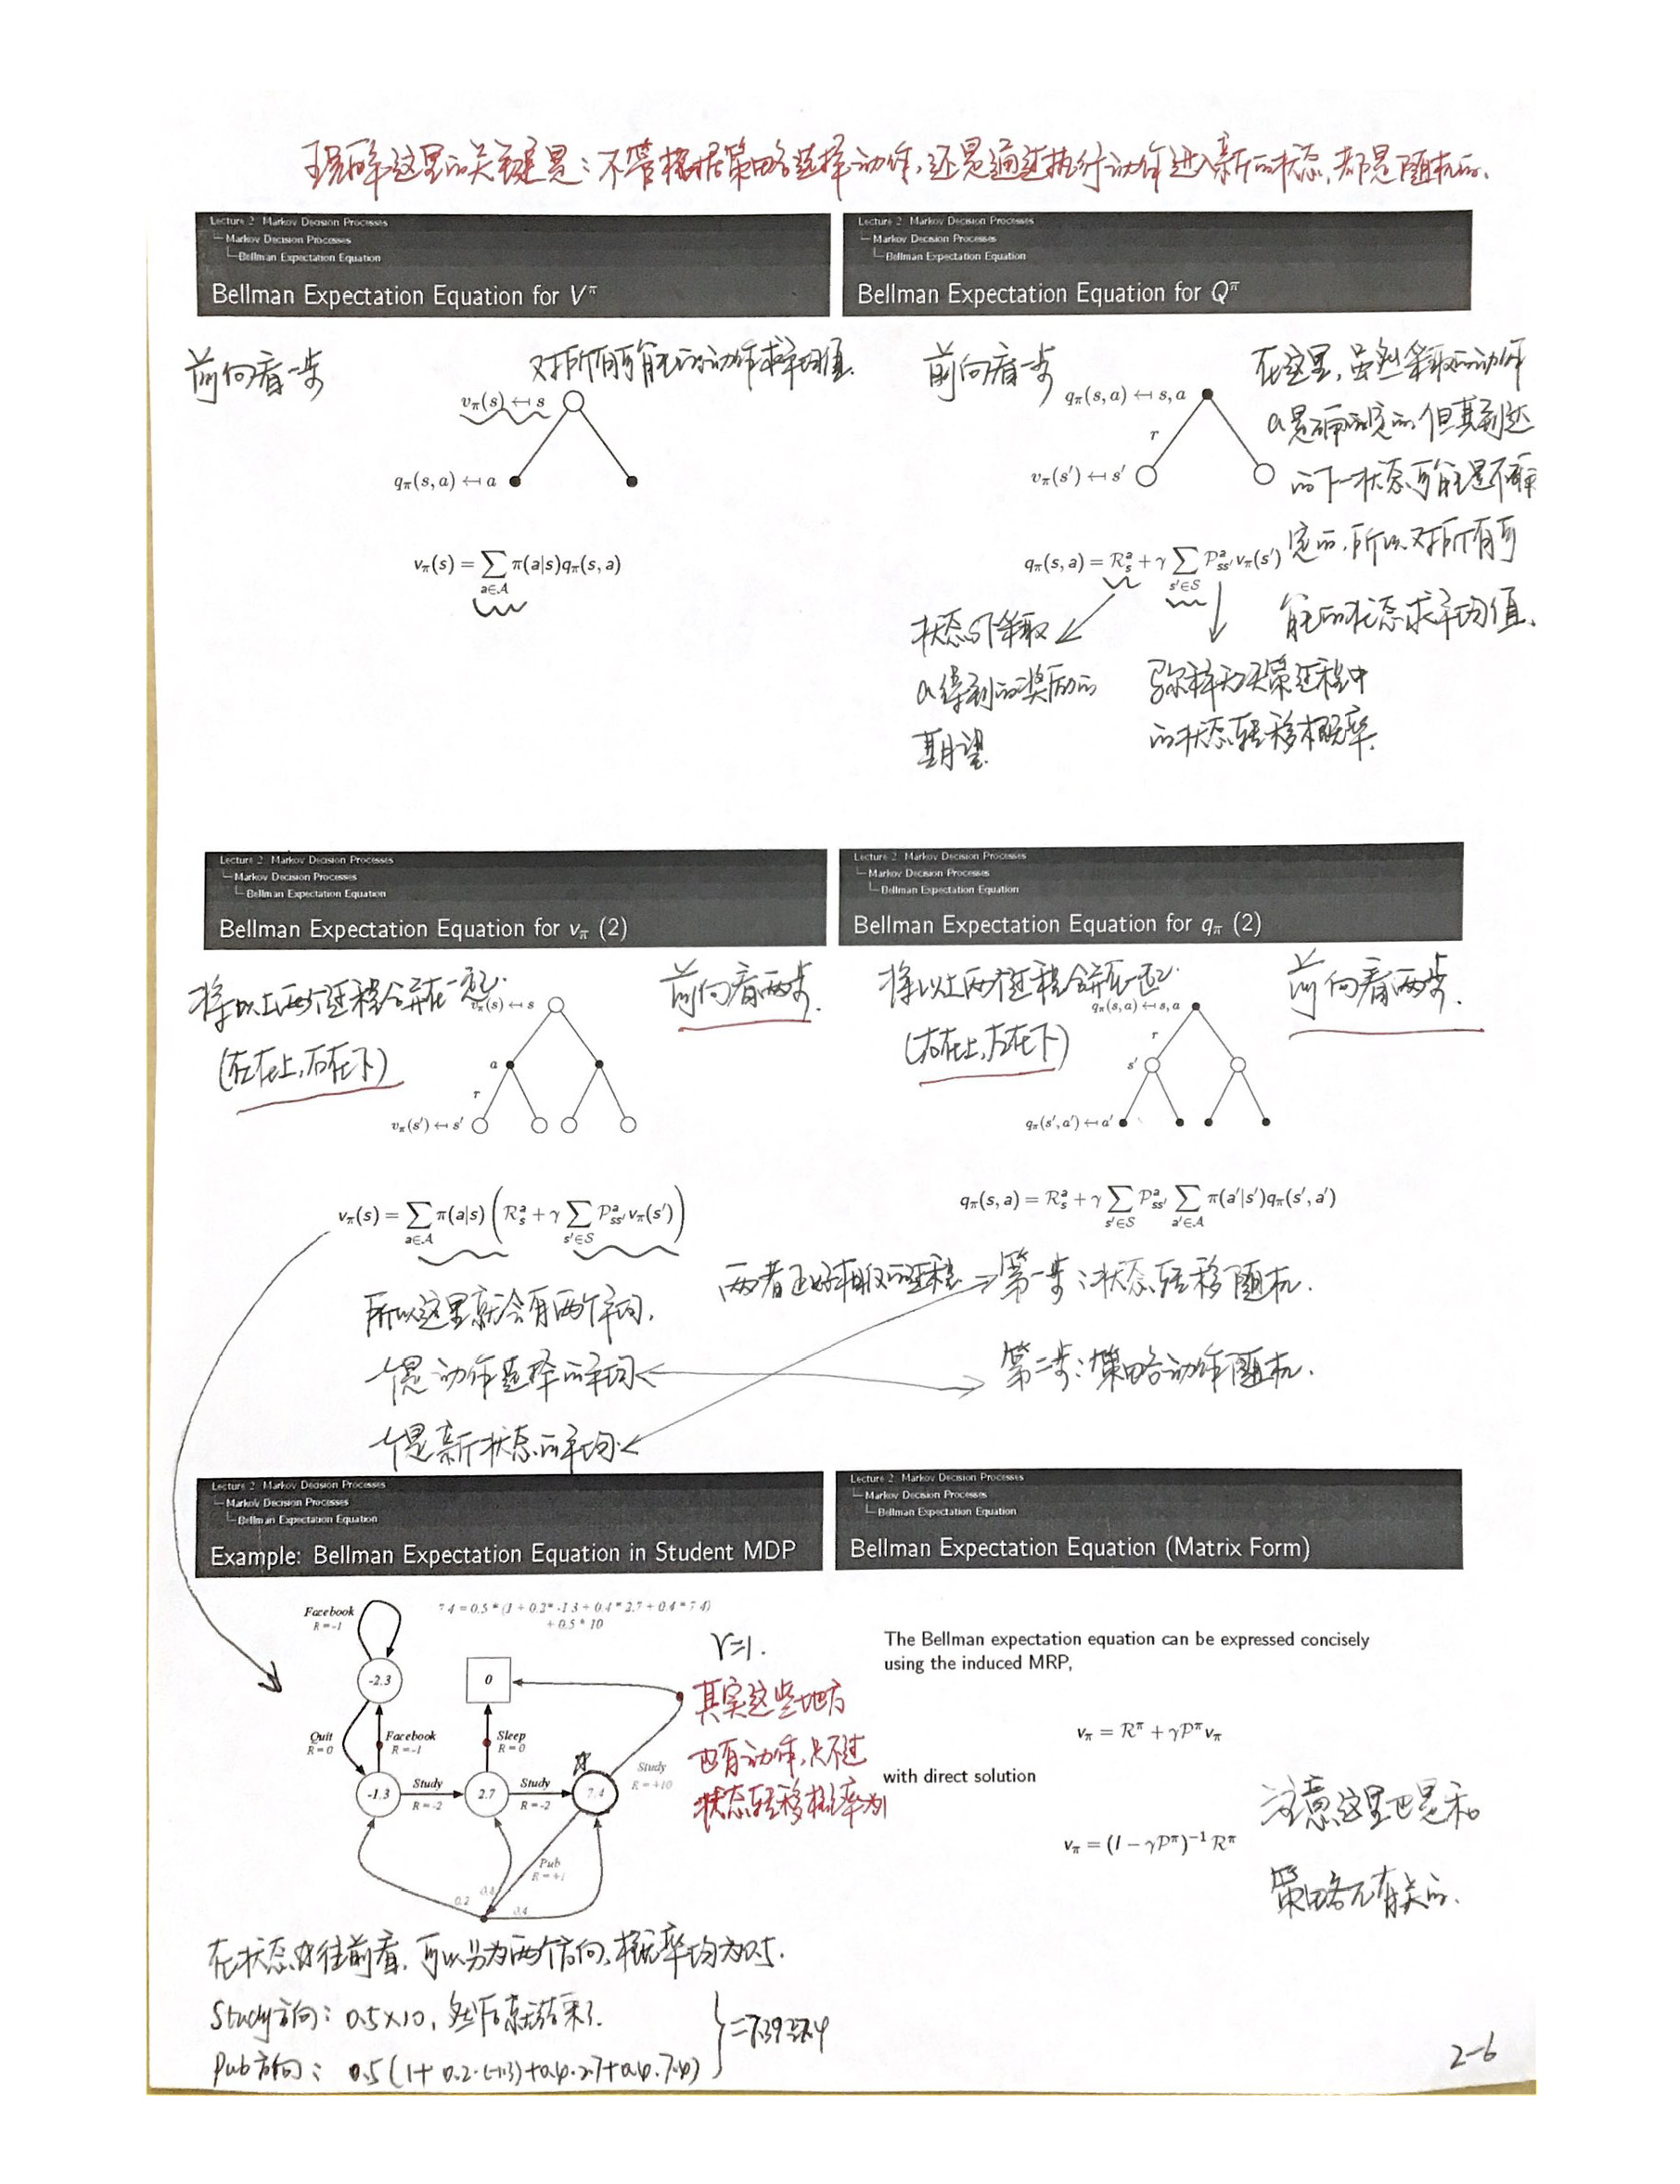 理解这里的关键是：不管根据策略选择动作，还是通过执行动作进入新的状态，都是随机的.
Lecture 2: Markov Decision Processes
Markov Decision Processes
Bellman Expectation Equation
Bellman Expectation Equation for V^π
前向看一步
对所有可能的动作求平均值.
v_π(s) ↤ s
q_π(s, a) ↤ a
v_π(s) = ∑_{a∈A} π(a|s)q_π(s, a)
Lecture 2: Markov Decision Processes
Markov Decision Processes
Bellman Expectation Equation
Bellman Expectation Equation for Q^π
前向看一步
q_π(s, a) ↤ s, a
r
v_π(s′) ↤ s′
在这里，虽然采取的动作
a是确定的，但其到达
的下一状态可能是不确
定的，所以对所有可
能的状态求平均值.
q_π(s, a) = R_s^a + γ ∑_{s′∈S} P_{ss′}^a v_π(s′)
状态s下采取
a得到的奖励的
期望.
马尔科夫决策过程中
的状态转移概率.
Lecture 2: Markov Decision Processes
Markov Decision Processes
Bellman Expectation Equation
Bellman Expectation Equation for v_π (2)
将以上两个过程合并在一起.
(左在上,右在下)
前向看两步.
v_π(s) ↤ s
a
r
v_π(s′) ↤ s′
v_π(s) = ∑_{a∈A} π(a|s) ( R_s^a + γ ∑_{s′∈S} P_{ss′}^a v_π(s′) )
所以这里就会有两个平均.
一个是动作选择的平均
一个是新状态的平均.
Lecture 2: Markov Decision Processes
Markov Decision Processes
Bellman Expectation Equation
Bellman Expectation Equation for q_π (2)
将以上两个过程合并在一起.
(右在上,左在下)
前向看两步.
q_π(s, a) ↤ s, a
r
s′
q_π(s′, a′) ↤ a′
q_π(s, a) = R_s^a + γ ∑_{s′∈S} P_{ss′}^a ∑_{a′∈A} π(a′|s′)q_π(s′, a′)
两者正好相反的过程 ⇒ 第一步：状态转移随机.
第二步：策略动作随机.
Lecture 2: Markov Decision Processes
Markov Decision Processes
Bellman Expectation Equation
Example: Bellman Expectation Equation in Student MDP
7.4 = 0.5 * (1 + 0.2* -1.3 + 0.4 * 2.7 + 0.4 * 7.4)
+ 0.5 * 10
Facebook
R = -1
-2.3
0
Quit
R = 0
Facebook
R = -1
Sleep
R = 0
-1.3
Study
R = -2
2.7
Study
R = -2
7.4
Study
R = +10
Pub
R = +1
0.2
0.4
0.4
γ=1.
其实这些地方
也有动作，只不过
状态转移概率为1
往前看，可以分为两个方向，概率均为0.5.
Study方向：0.5×10，然后就结束了.
Pub方向：0.5(1+0.2·(-1.3)+0.4·2.7+0.4·7.4)
=7.39≈7.4
Lecture 2: Markov Decision Processes
Markov Decision Processes
Bellman Expectation Equation
Bellman Expectation Equation (Matrix Form)
The Bellman expectation equation can be expressed concisely
using the induced MRP,
v_π = R^π + γP^π v_π
with direct solution
v_π = (I − γP^π)^{−1} R^π
注意这里也是和
策略π有关的.
2-6